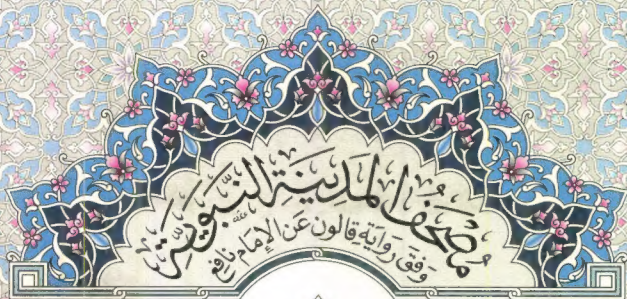 مُصْحَفُ المَدِينَةِ النَّبَوِيَّةِ
وَفْقَ رِوَايَةِ قَالُونَ عَنِ الإِمَامِ نَافِعٍ